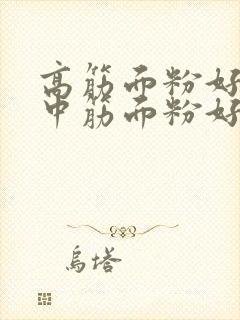 高筋面粉好
中筋面粉好
乌塔